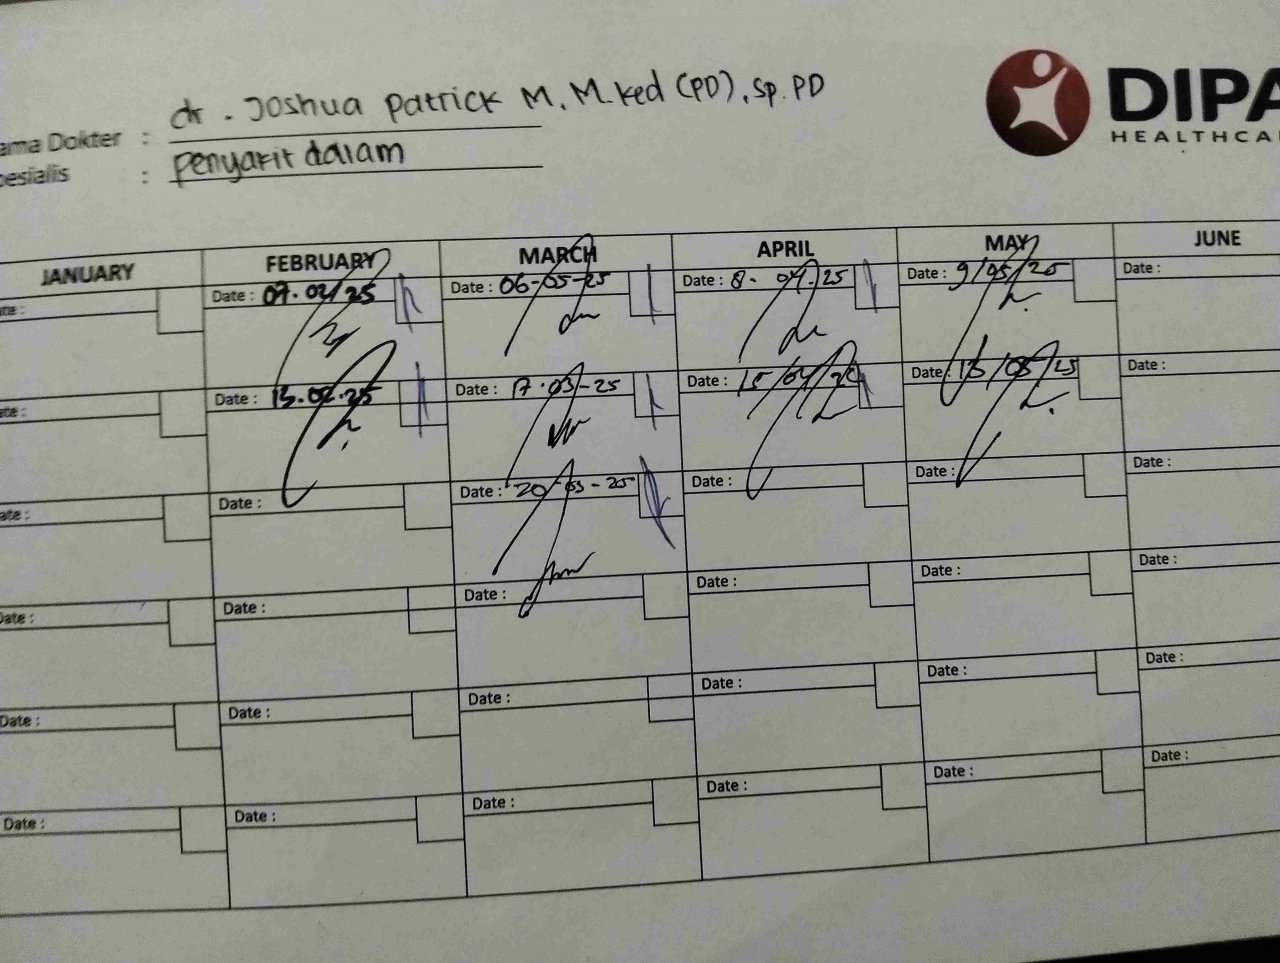 dr. Joshua Patrick M, M.Ked (PD), Sp.PD
ama Dokter :
pesialis : Penyakit dalam
DIPA
HEALTHCA
JANUARY FEBRUARY MARCH APRIL MAY JUNE
ate : Date : 07.02/25 Date : 06-03-25 Date : 8-04-25 Date : 9/05/25 Date :
ate : Date : 13.02.25 Date : 17-03-25 Date : 15/04/25 Date : 15/05/25 Date :
ate : Date : Date : 20-03-25 Date : Date : Date :
Date : Date : Date : Date : Date : Date :
Date : Date : Date : Date : Date : Date :
Date : Date : Date : Date : Date : Date :